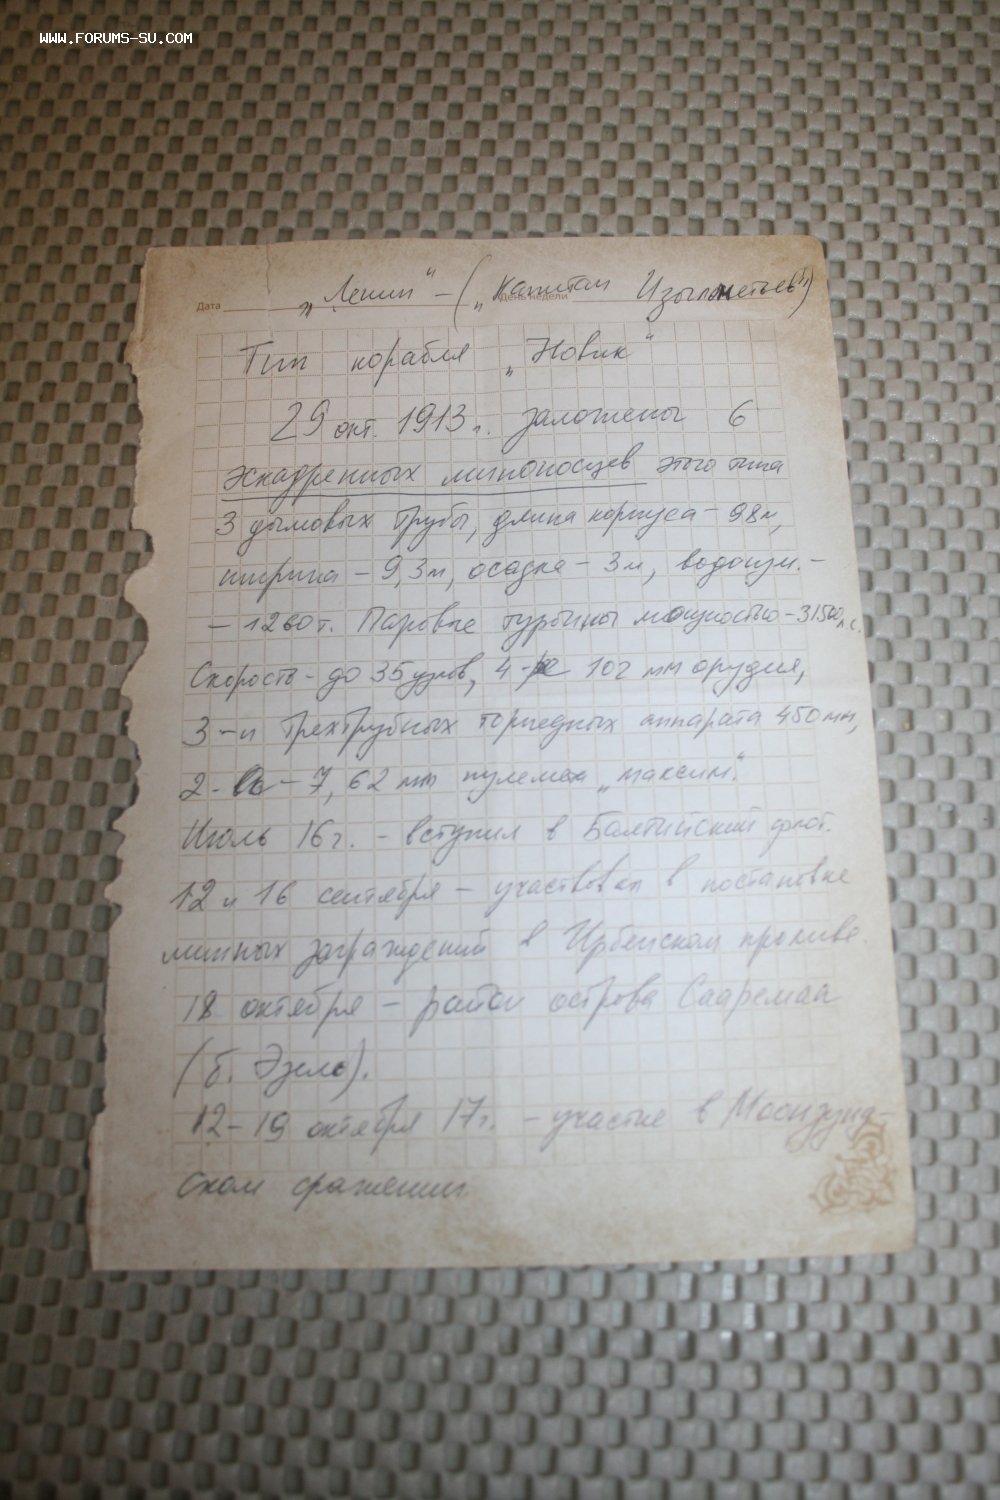 WWW.FORUMS-SU.COM
Дата День недели
„Ленин“ – („Капитан Изыльметьев“)
Тип корабля „Новик“
29 окт. 1913 г. заложены 6
эскадренных миноносцев этого типа
3 дымовых трубы, длина корпуса – 98 м,
ширина – 9,3 м, осадка – 3 м, водоизм. –
– 1260 т. Паровые турбины мощностью – 31500 л.с.
Скорость – до 35 узлов, 4 – 102 мм орудия,
3-и трехтрубных торпедных аппарата 450 мм,
2 – 7,62 мм пулемета „максим“.
Июль 16 г. – вступил в Балтийский флот.
12 и 16 сентября – участвовал в постановке
минных заграждений в Ирбенском проливе.
18 октября – район острова Сааремаа
(б. Эзель).
12 – 19 октября 17 г. – участие в Моонзунд-
ском сражении